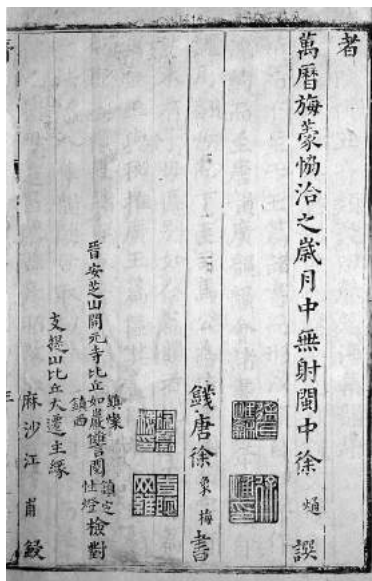 者
萬曆旃蒙恊洽之歲月中無射閩中徐熥譔
錢唐徐象梅書
晉安芝山開元寺比丘如巖讐閱
鎮燦
鎮西
鎮定
性燈
檢對
支提山比丘大遷主緣
麻沙江甫鋟